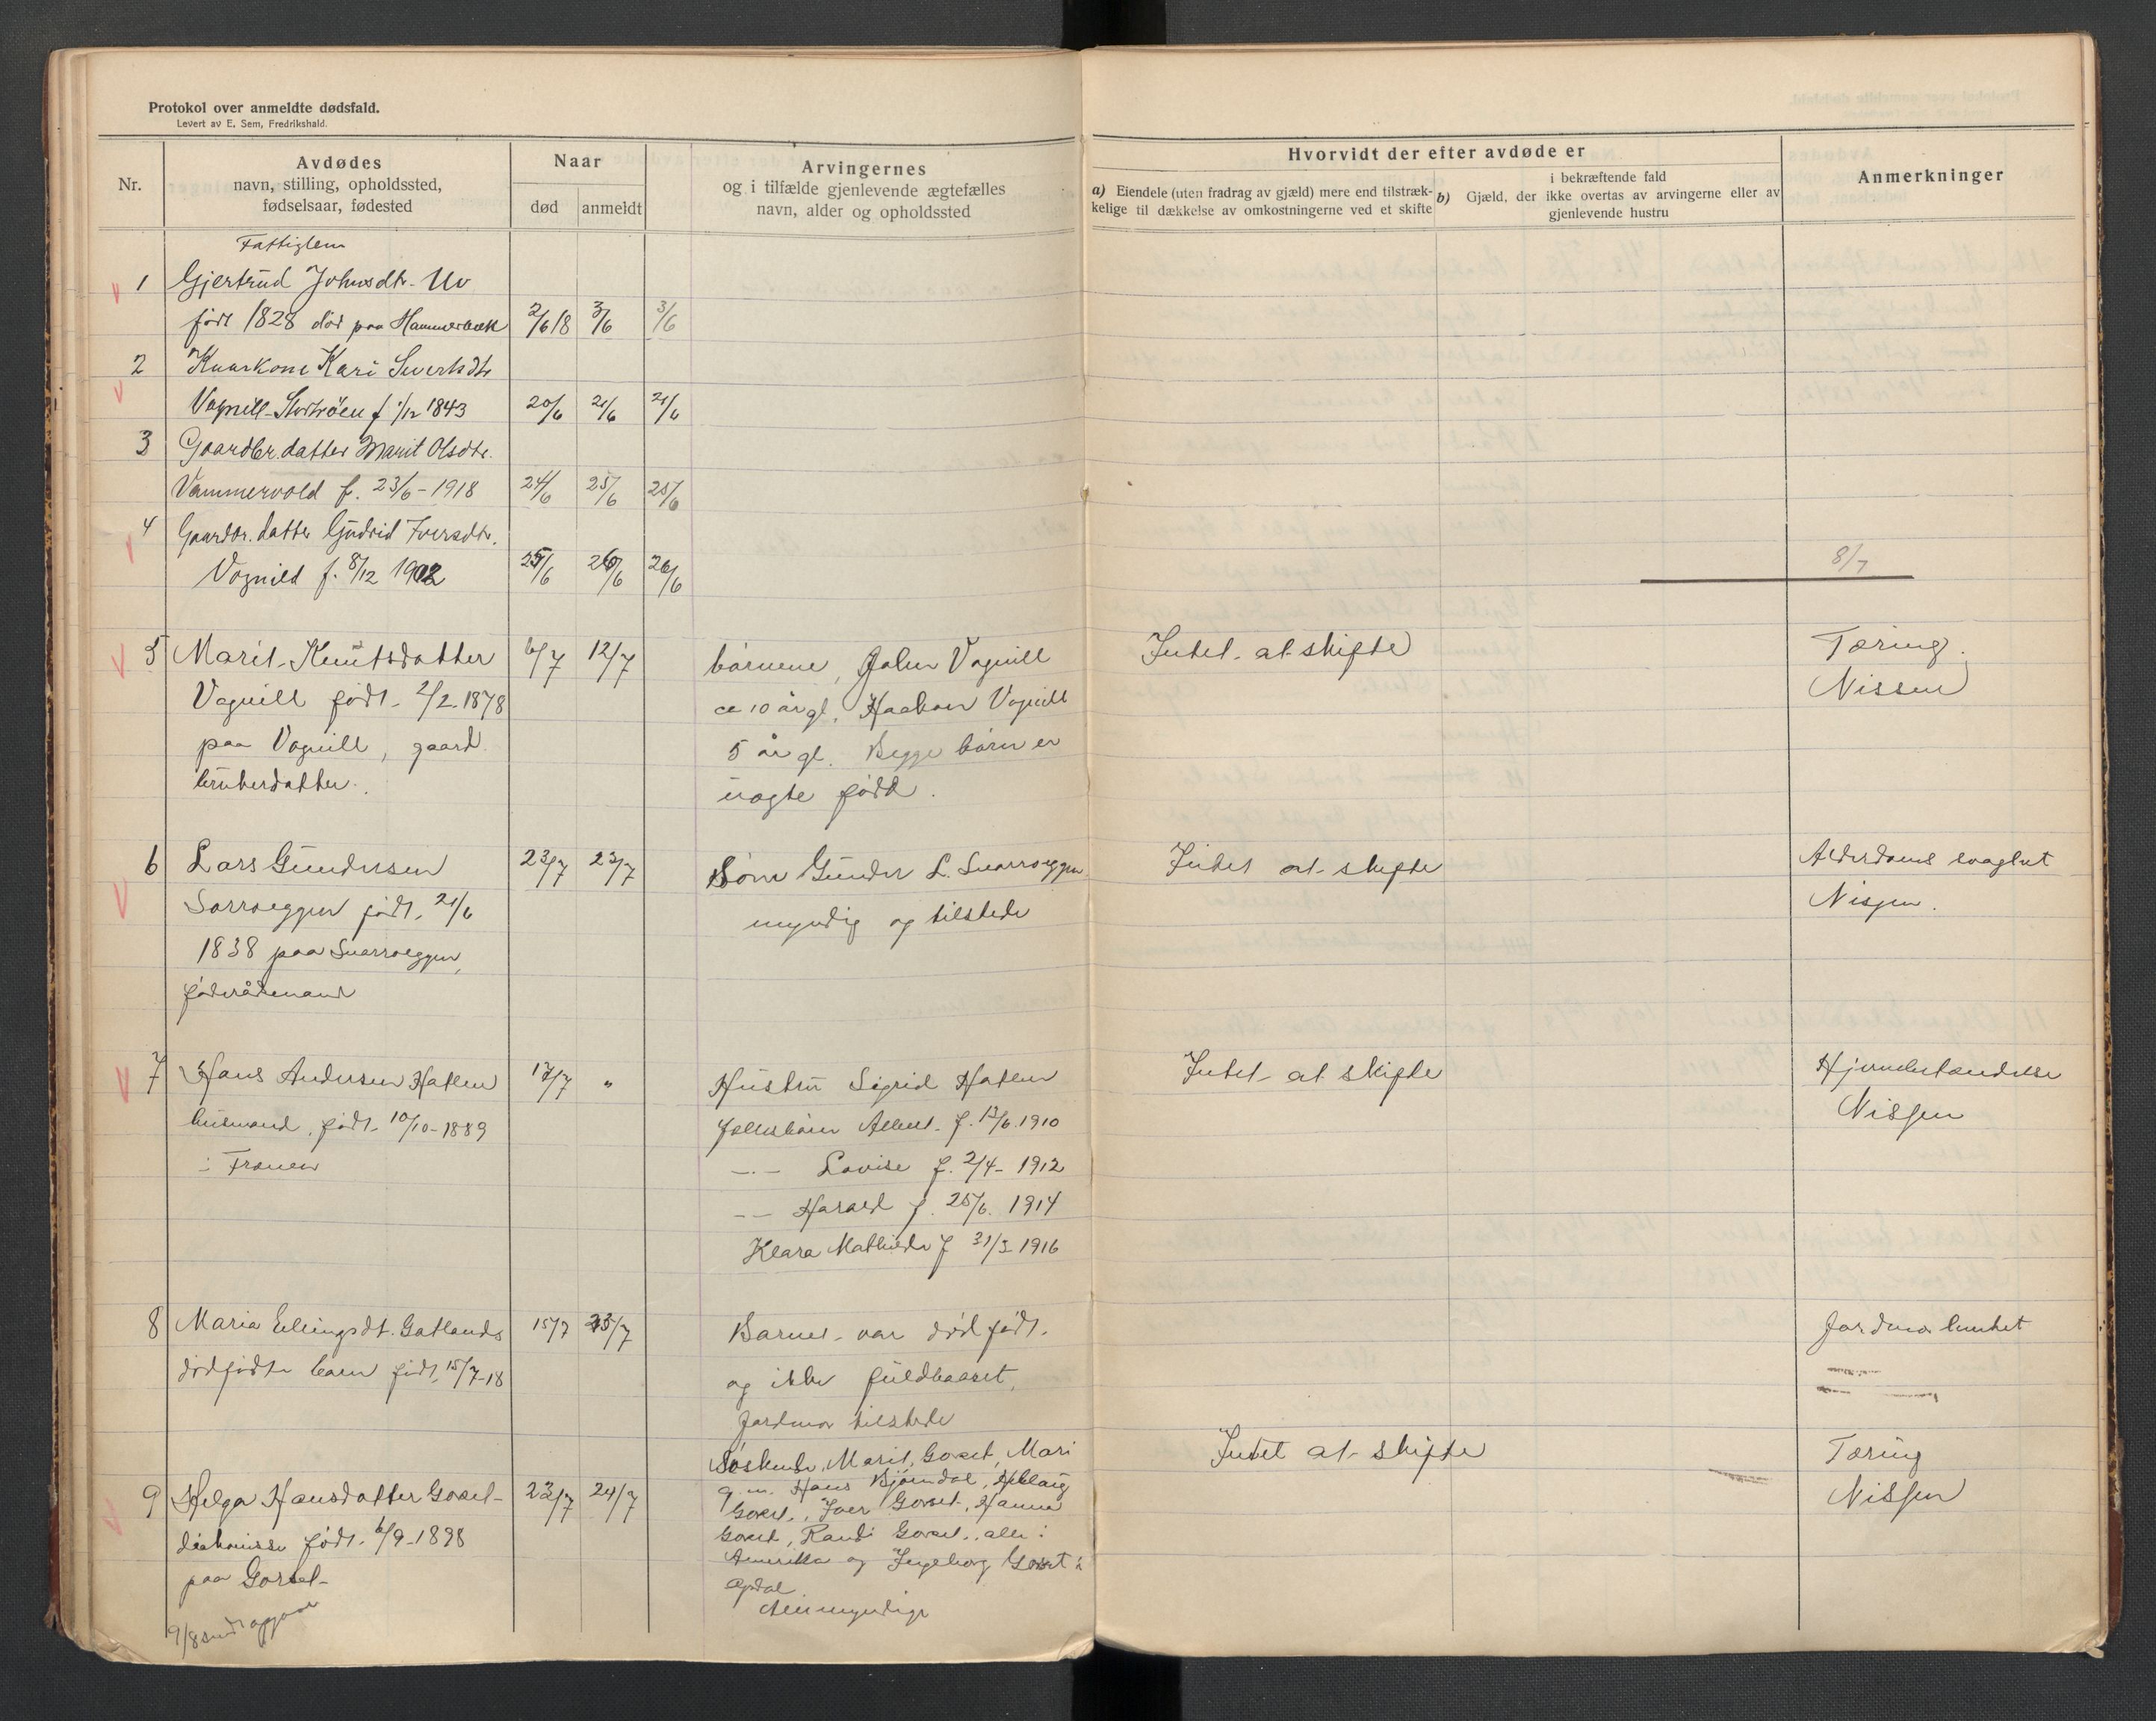 Protokol over anmeldte dødsfald.
Levert av E. Sem, Fredrikshald.
Nr.
Avdødes
navn, stilling, opholdssted,
fødselsaar, fødested
Naar
død
anmeldt
Arvingernes
og i tilfælde gjenlevende ægtefælles
navn, alder og opholdssted
Hvorvidt der efter avdøde er
a) Eiendele (uten fradrag av gjæld) mere end tilstræk-
kelige til dækkelse av omkostningerne ved et skifte
i bekræftende fald
b) Gjæld, der ikke overtas av arvingerne eller av
gjenlevende hustru
Anmerkninger
Fattiglem
1 Gjertrud Johnsdtr. Uv
født 1828 død paa Hammerbæk 2/6 18 3/6 3/6
2 Kaarkone Kari Sivertsdtr
Vognill-Stortrøen f 1/12 1843 20/6 21/6 21/6
3 Gaardbr. datter Marit Olsdtr.
Vammervold f. 23/6-1918 24/6 25/6 25/6
4 Gaardbr. datter Gudrid Iversdtr.
Vognild f. 8/12 1902 25/6 26/6 26/6
8/7
5 Marit Knutsdatter 6/7 12/7
Vognill født 2/2 1878
paa Vognill, gaard
brukerdatter.
børnene, John Vognill
ca 10 år gl, Haakon Vognill
5 år gl. Begge børn er
uægte født.
Intet at skifte
Tæring.
Nissen
6 Lars Gundersen 23/7 23/7
Snarroeggen født 21/6
1838 paa Snarroeggen,
føderådsmand
Sønn Gunder L. Snarroeggen
myndig og tilstede
Intet at skifte
Alderdoms svaghet
Nissen.
7 Hans Andersen Hatlen 17/7 "
husmand, født 10/10-1889
i Frænen
Hustru Sigrid Hatlen
fællesbørn Albert f. 13/6 1910
-.- Lovise f. 2/4-1912
-- Harald f. 25/6. 1914
Klara Mathilde f 31/3 1916
Intet at skifte
Hjernebetændelse
Nissen
8 Maria Ellingsdt. Gatlands 15/7 23/7
dødfødte barn født 15/7-18
Barnet var dødfødt
og ikke fuldbaaret,
Jordmor tilstede
Jordmor Lunhet
9 Helga Hansdatter Gorset 23/7 24/7
diakonisse født 6/9-1898
paa Gorset
9/8 sendt opgave
Søskende, Marit Gorset, Mari
g.m. Hans Bjørndal, Aslaug
Gorset, Iver Gorset, Hanna
Gorset, Randi Gorset, alle i
Amerika og Ingeborg Gorset i
Opdal
Alle myndige
Intet at skifte
Tæring
Nissen